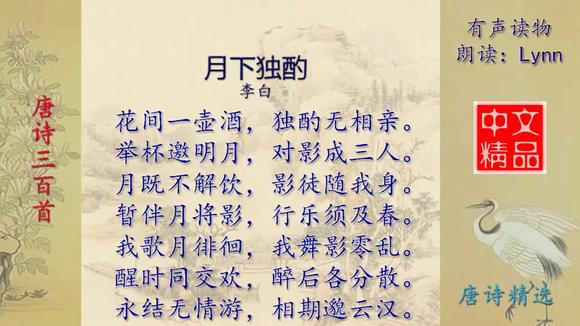 月下独酌
李白
花间一壶酒，独酌无相亲。
举杯邀明月，对影成三人。
月既不解饮，影徒随我身。
暂伴月将影，行乐须及春。
我歌月徘徊，我舞影零乱。
醒时同交欢，醉后各分散。
永结无情游，相期邈云汉。
唐诗三百首
有声读物
朗读：Lynn
中文
精品
唐诗精选